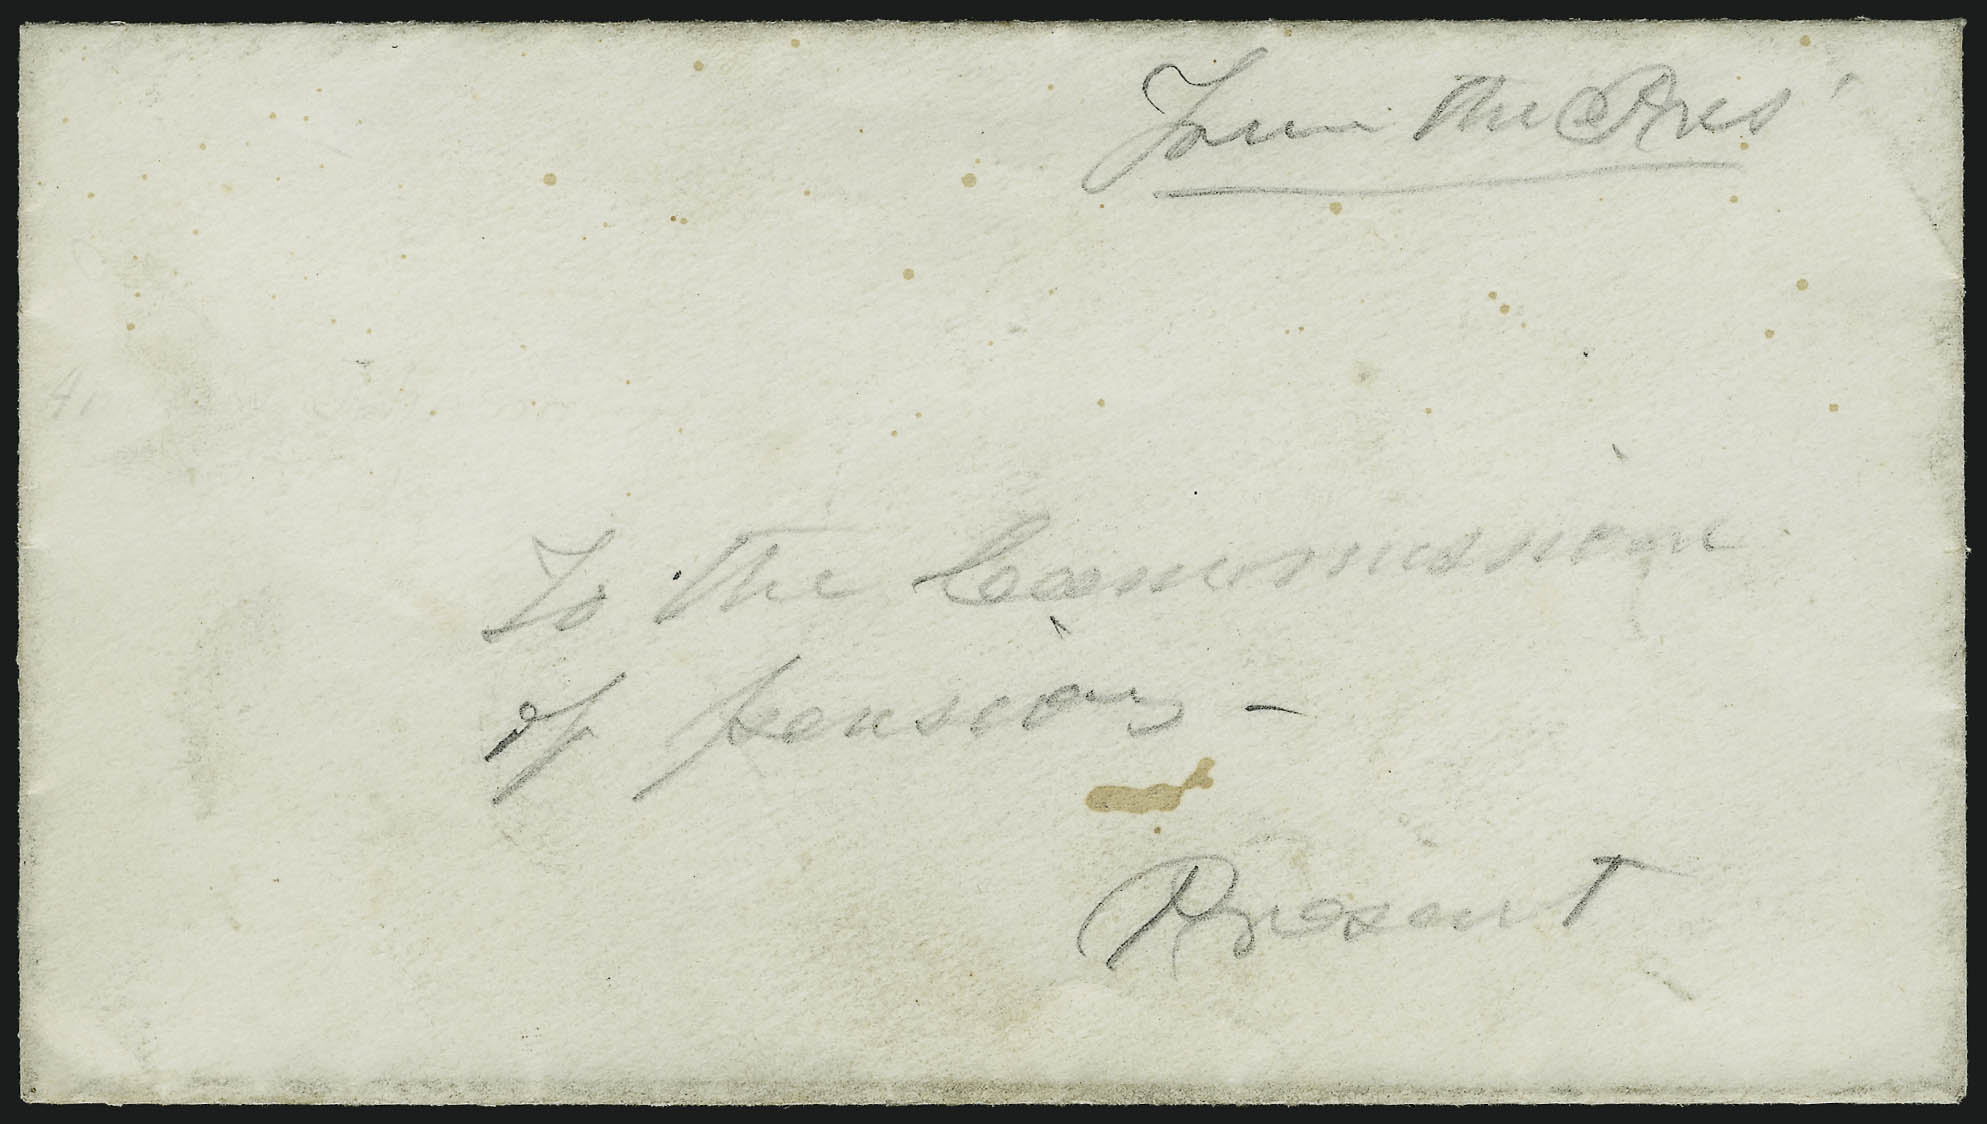 From the Pres'
To the Commissione
of pensions -
Present